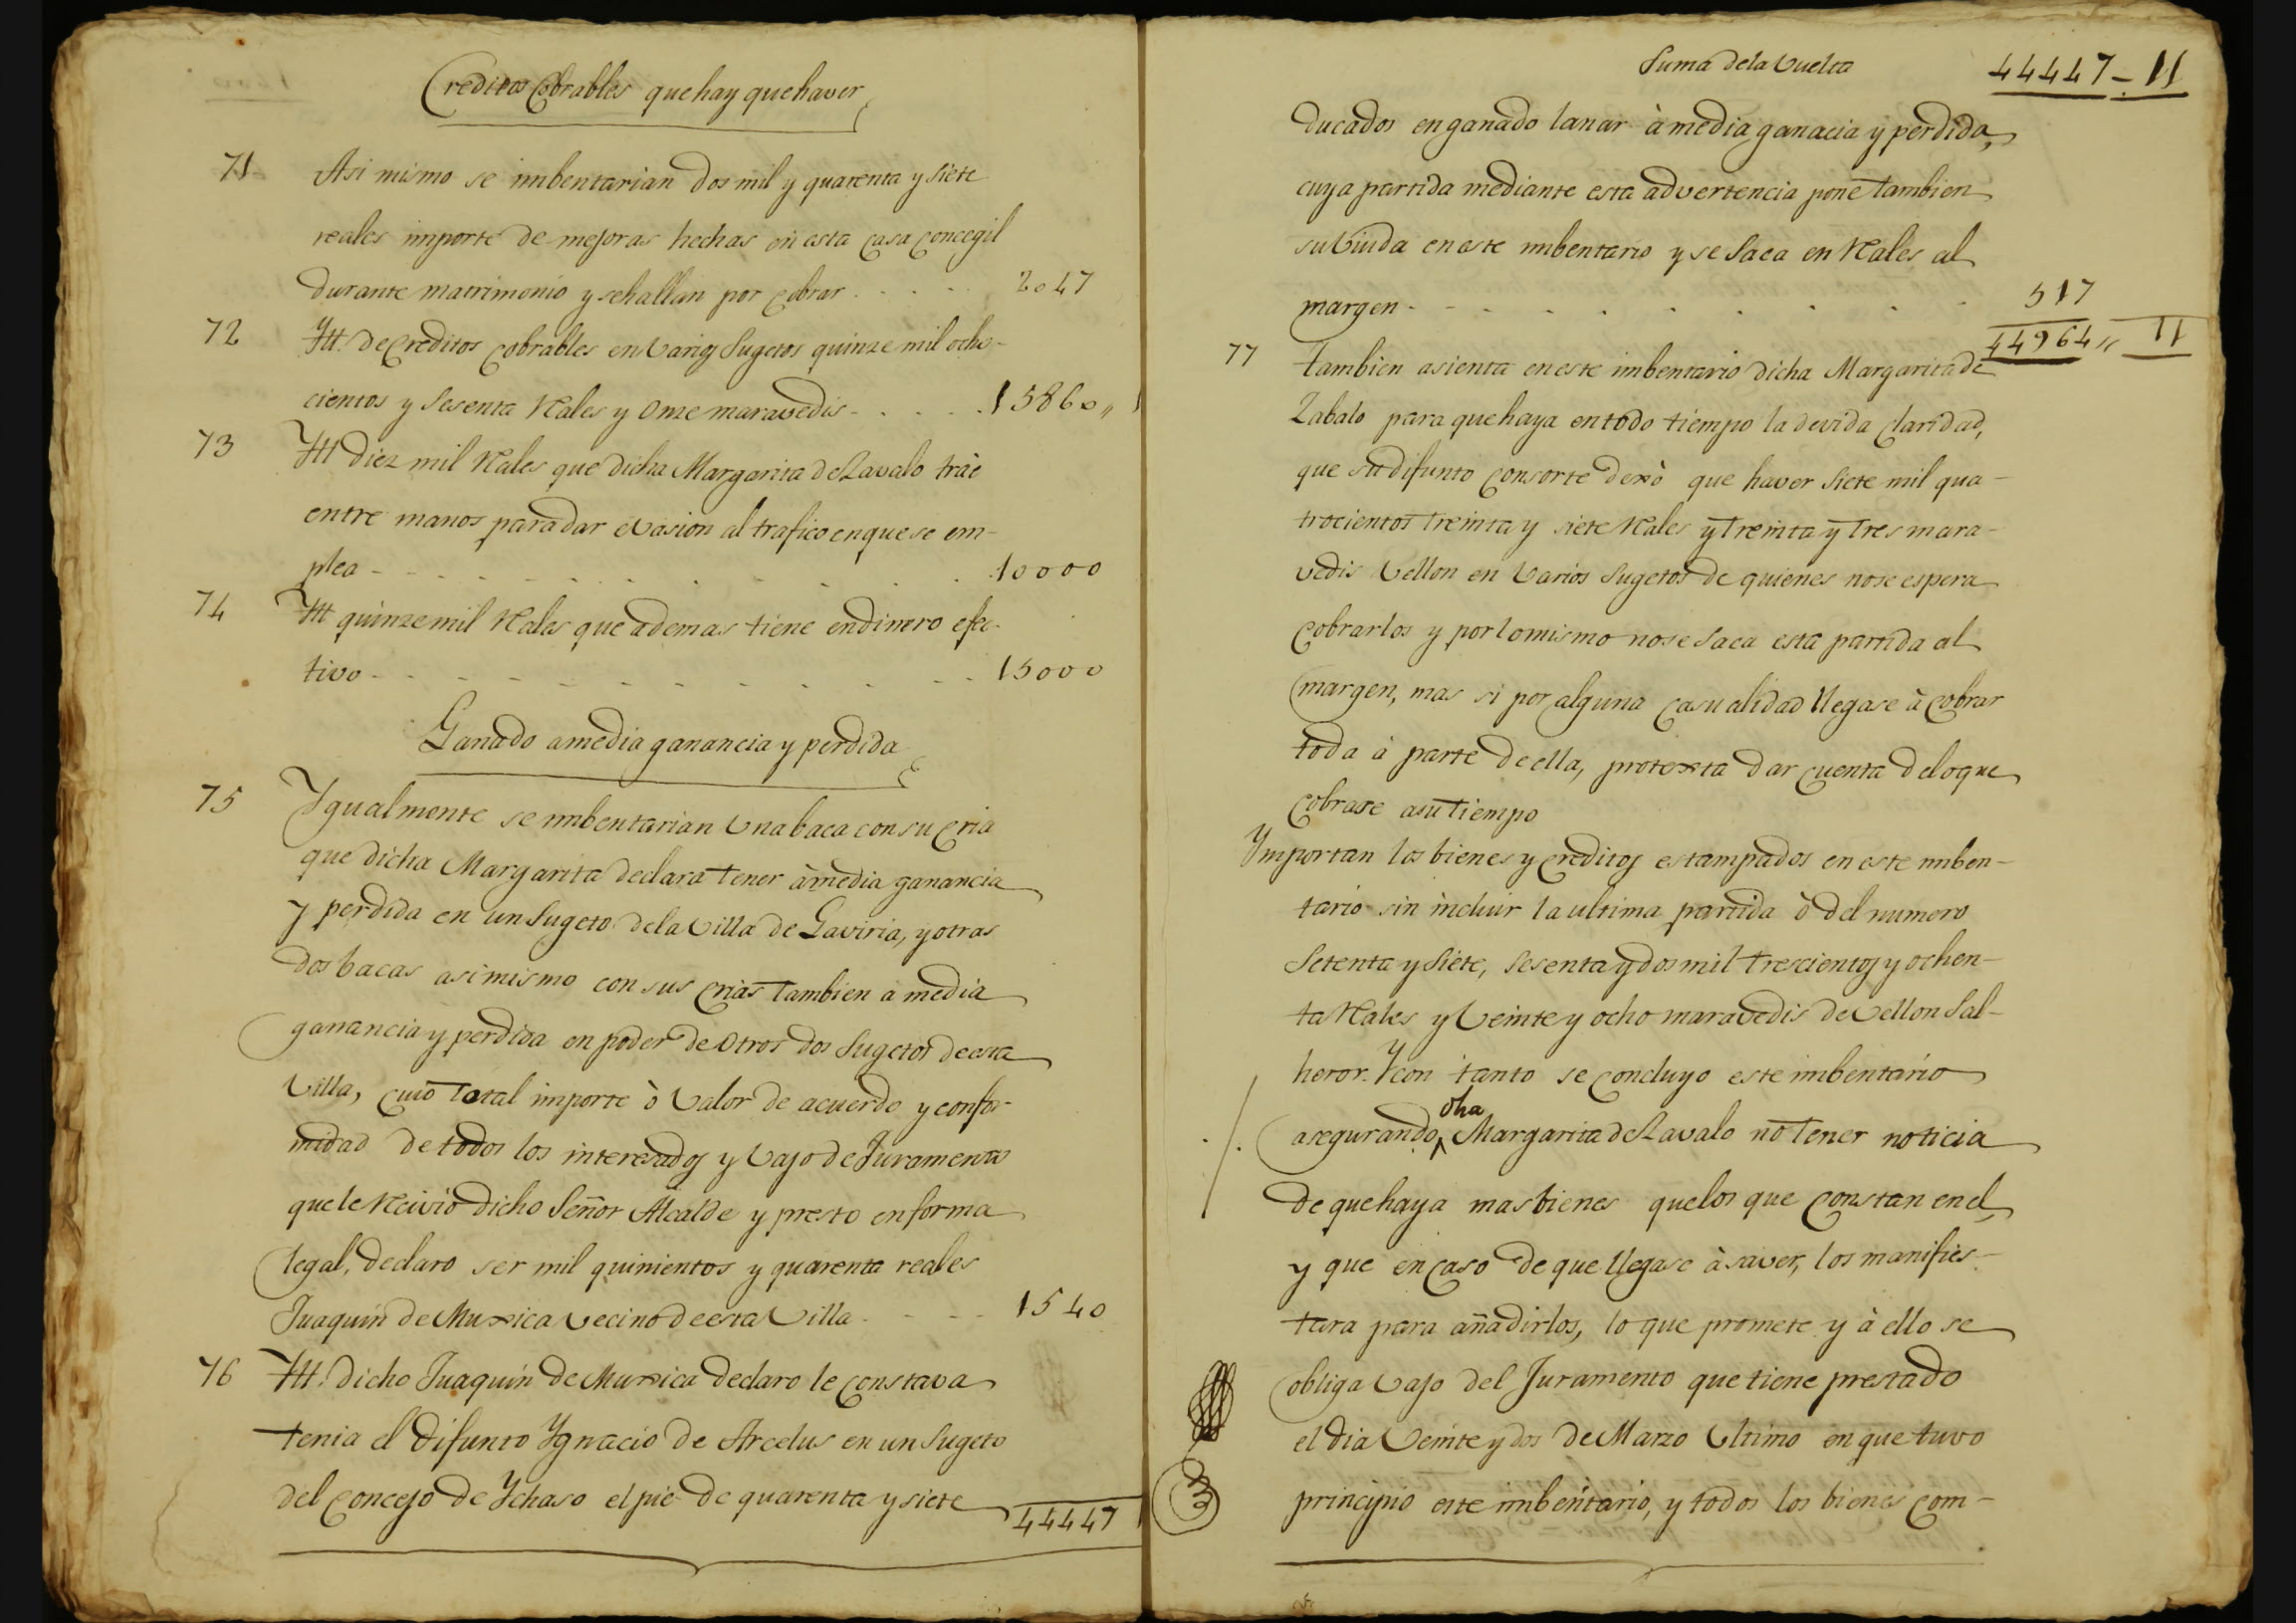 Creditos Cobrables que hay que haver
71 Asi mismo se imbentarian dos mil y quarenta y siete
reales importe de mejoras hechas en esta casa concegil
durante matrimonio y se hallan por cobrar . . . . . 2047
72 Itt. de Creditos cobrables en varios Sugetos quinze mil ocho-
cientos y sesenta Reales y onze maravedis - . . . . 15860,, 1
73 Itt diez mil Reales que dicha Margarita de Zavalo tráe
entre manos para dar evasion al trafico en que se em-
plea - - . . . . . . . . . 10000
74 Itt quinze mil Reales que ademas tiene en dinero efec-
tivo - - - - - - - - - - - - 15000
Ganado a media ganancia y perdida
75 Igualmente se imbentarian una baca con su cria
que dicha Margarita declara tener à media ganancia
y perdida en un sugeto de la Villa de Gaviria, y otras
dos bacas asimismo con sus crias tambien a media
ganancia y perdida en poder de otros dos Sugetos de esta
Villa, cuio total importe ò valor de acuerdo y confor-
midad de todos los interesados y vajo de Juramento
que le Recivió dicho Señor Alcalde y presto en forma
legal, declaro ser mil quinientos y quarenta reales
Juaquin de Muxica vecino de esta Villa . - - - 1540
76 Itt. dicho Juaquin de Muxica declaro le constava
tenia el difunto Ygnacio de Arcelus en un Sugeto
del concejo de Ychaso el pie de quarenta y siete
44447
Suma de la Vuelta 44447 - 11
ducados en ganado lanar à media ganacia y perdida,
cuya partida mediante esta advertencia pone tambien
su Viuda en este imbentario y se saca en Reales al
margen - - - . . . . . . . 517
44964,, 11
77 tambien asienta en este imbentario dicha Margarita de
Zabalo para que haya en todo tiempo la devida claridad,
que su difunto consorte dexò que haver siete mil qua-
trocientos treinta y siete Reales y treinta y tres mara-
vedis Vellon en varios Sugetos de quienes no se espera
cobrarlos y por lo mismo no se saca esta partida al
margen, mas si por alguna casualidad llegase à cobrar
toda ò parte de ella, protexta dar cuenta de lo que
cobrare a su tiempo
Ymportan los bienes y creditos estampados en este imben-
tario sin incluir la ultima partida ò del numero
setenta y siete, sesenta y dos mil trescientos y ochen-
ta Reales y veinte y ocho maravedis de Vellon sal-
heror. Y con tanto se concluyo este imbentario
asegurando dha Margarita de Zavalo no tener noticia
de que haya mas bienes que los que constan en el,
y que en caso de que llegase à saver, los manifies-
tara para añadirlos, lo que promete y à ello se
obliga vajo del Juramento que tiene prestado
el dia veinte y dos de Marzo ultimo en que tuvo
principio este imbentario, y todos los bienes com-